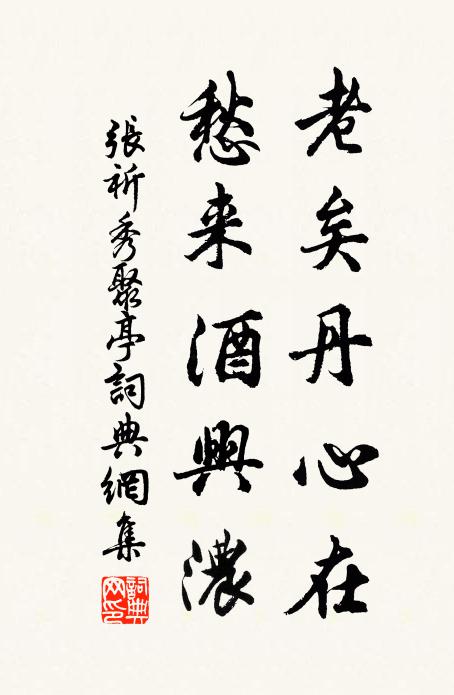 老矣丹心在
愁来酒興濃
張祈秀聚亭詞典網集
詞典网印